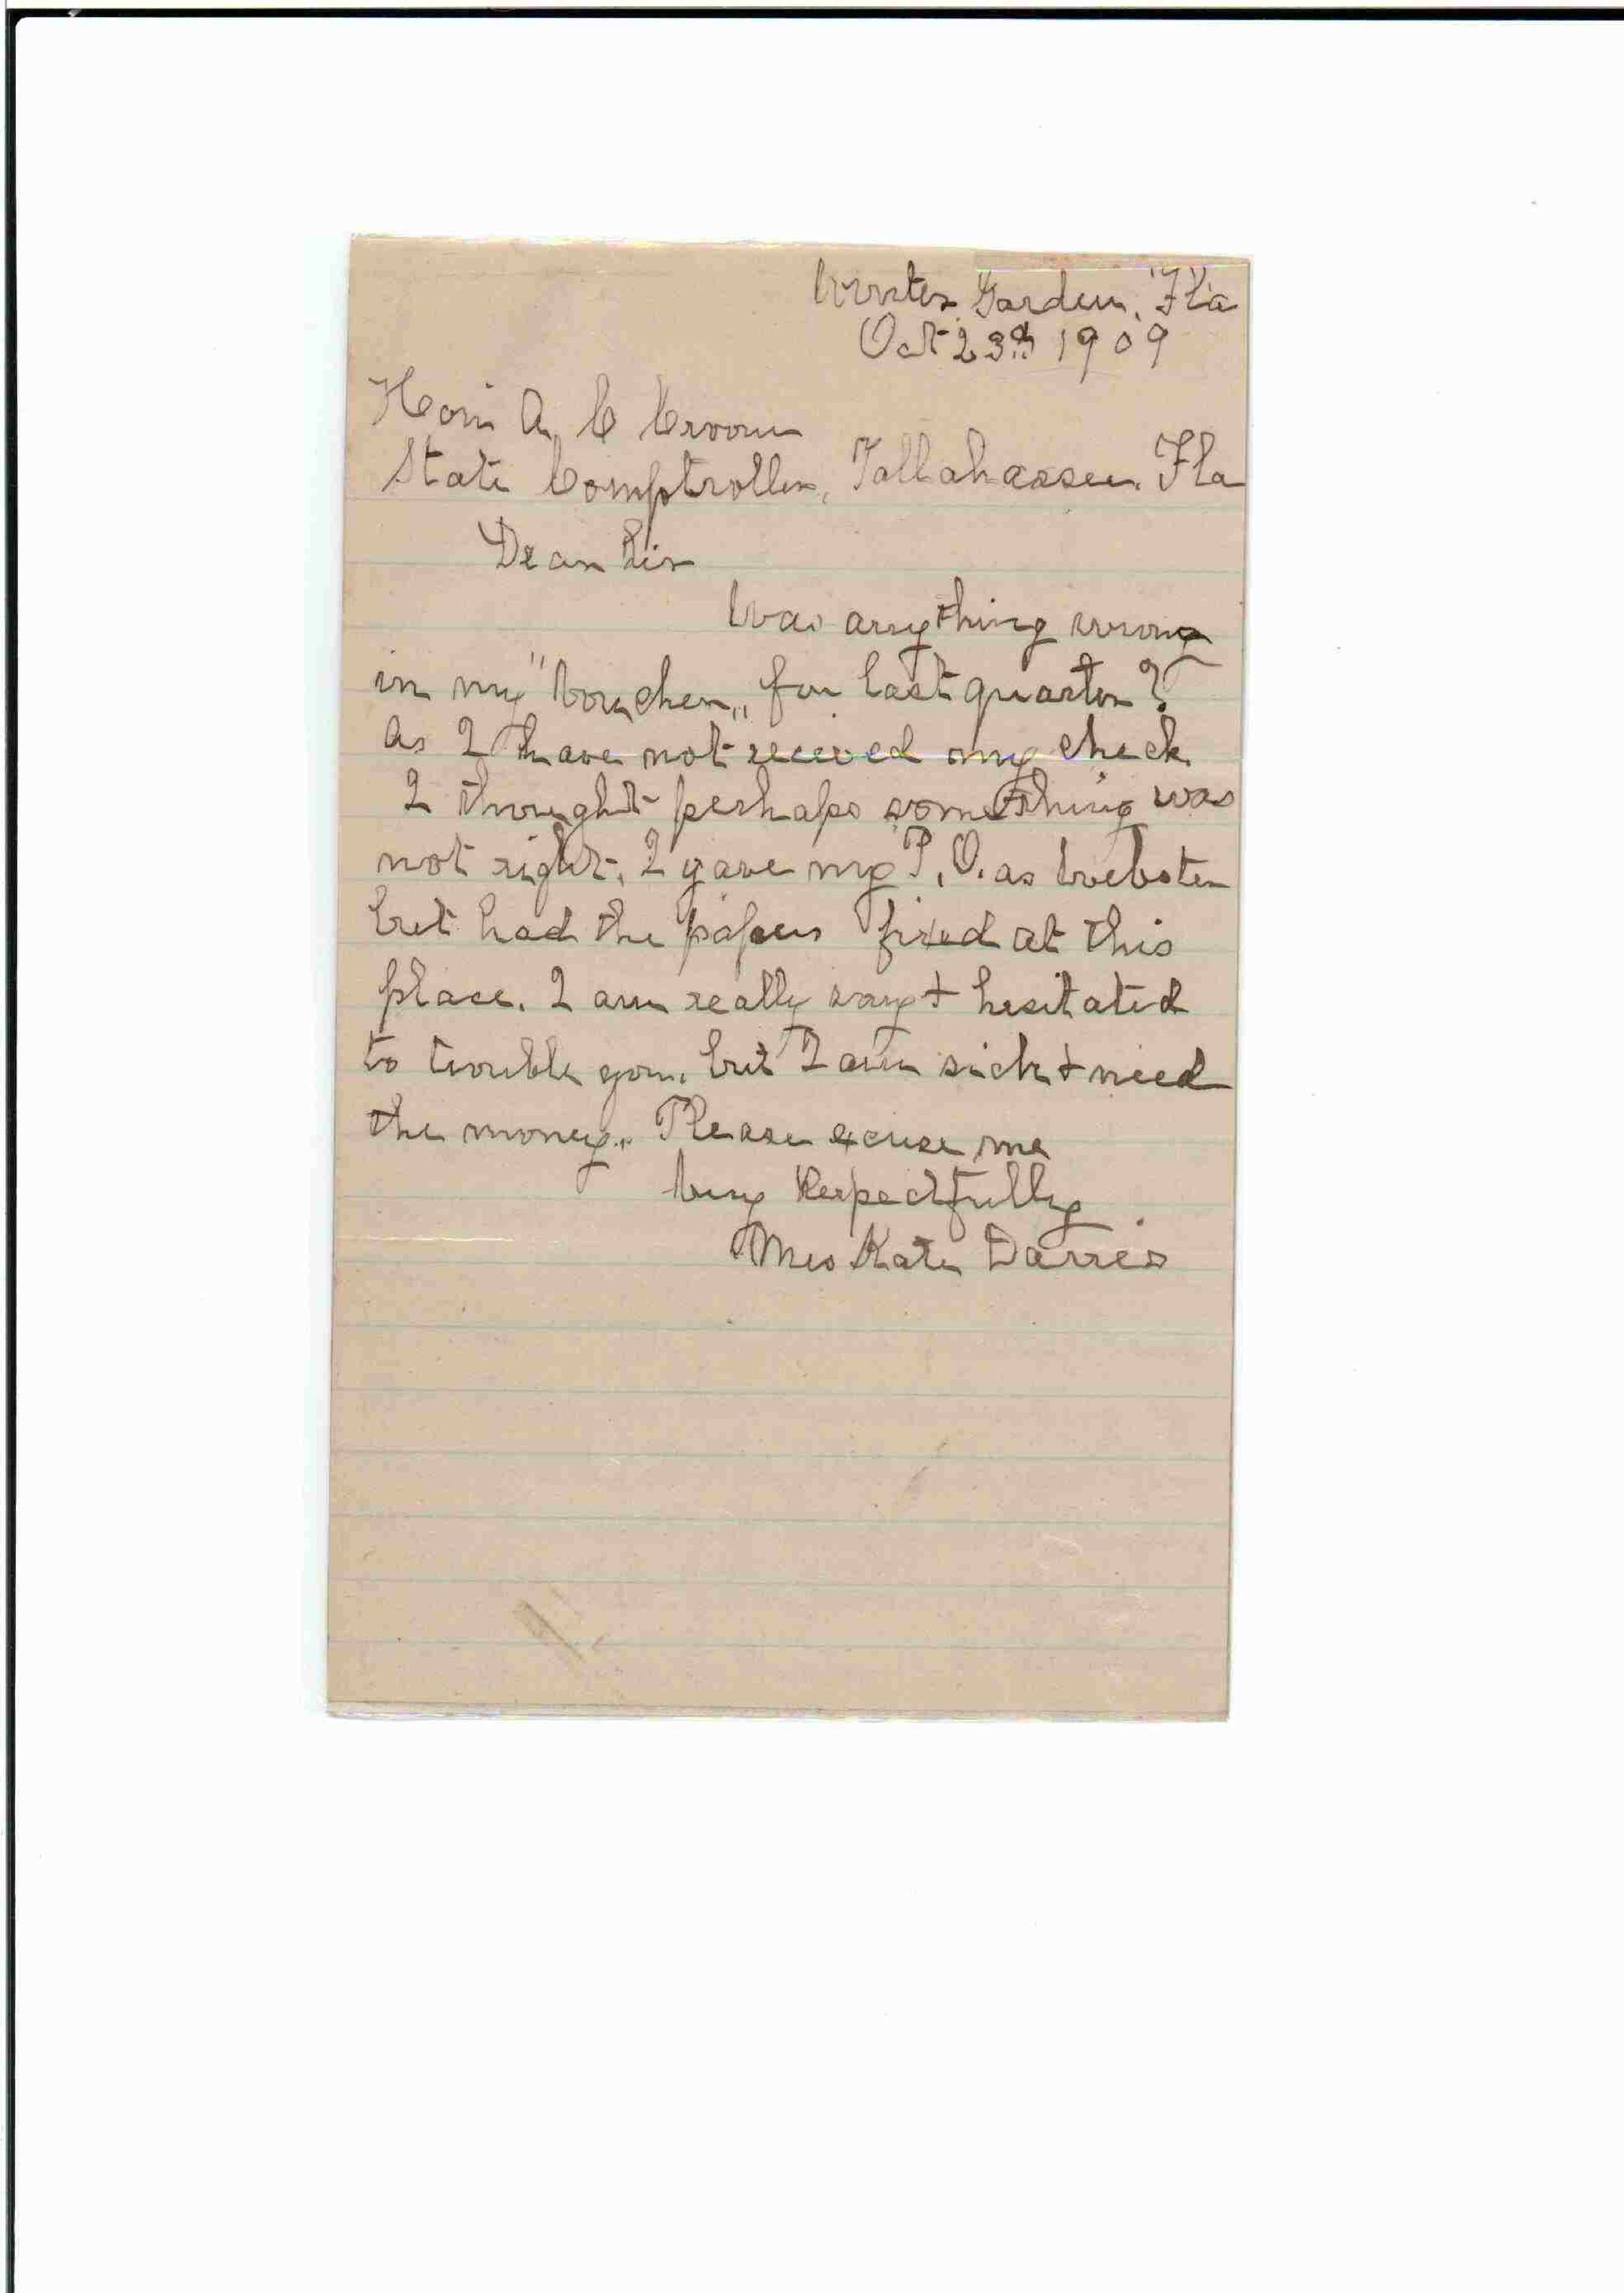 Winter Garden, Fla
Oct 23rd 1909
Hon A C Croom
State Comptroller, Tallahassee. Fla
Dear Sir
Was anything wrong
in my "Voucher" for last quarter?
As I have not receved my check.
I thought perhaps something was
not right. I gave my P. O. as Webster
but had the papers fixed at this
place. I am really sorry + hesitated
to trouble you. but I am sick + need
the money. Please excuse me
Very Respectfully
Mrs Kate